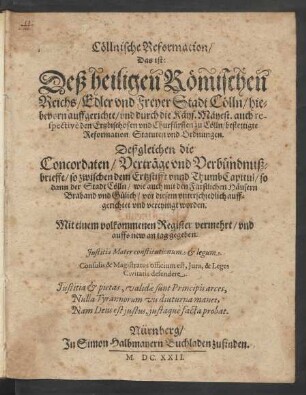 Cöllnische Reformation/
Das ist:
Deß heiligen Römischen
Reichs/ Edler vnd Freyer Stadt Cölln/ hie-
bevorn auffgerichte/ vnd durch die Käys. Mäyest. auch re-
spective den Ertzbischofen vnd Churfürsten zu Cölln/ bestettigte
Reformation Statuten vnd Ordnungen.
Deßgleichen die
Concordaten/ Verträge vnd Verbündnuß-
brieffe/ so zwischen dem Ertzstifft vnnd Thumb Capitul/ so
dann der Stadt Cölln/ wie auch mit den Fürstlichen Häusern
Braband vnd Gülich/ vor diesem vnterschiedlich auff-
gerichtet vnd vereyniget worden.
Mit einem volkommenen Register vermehrt/ vnd
auffs new an tag gegeben.
Justitia Mater constitutionum & legum.
Consulis & Magistratus officium est, Jura, & Leges
Civitatis defendere.
Justitia & pietas, validæ sunt Principis arces,
Nulla Tyrannorum vis diuturna manet,
Nam Deus est justus, justaque facta probat.
Nürnberg/
In Simon Halbmayern Buchladen zufinden.
M. DC. XXII.